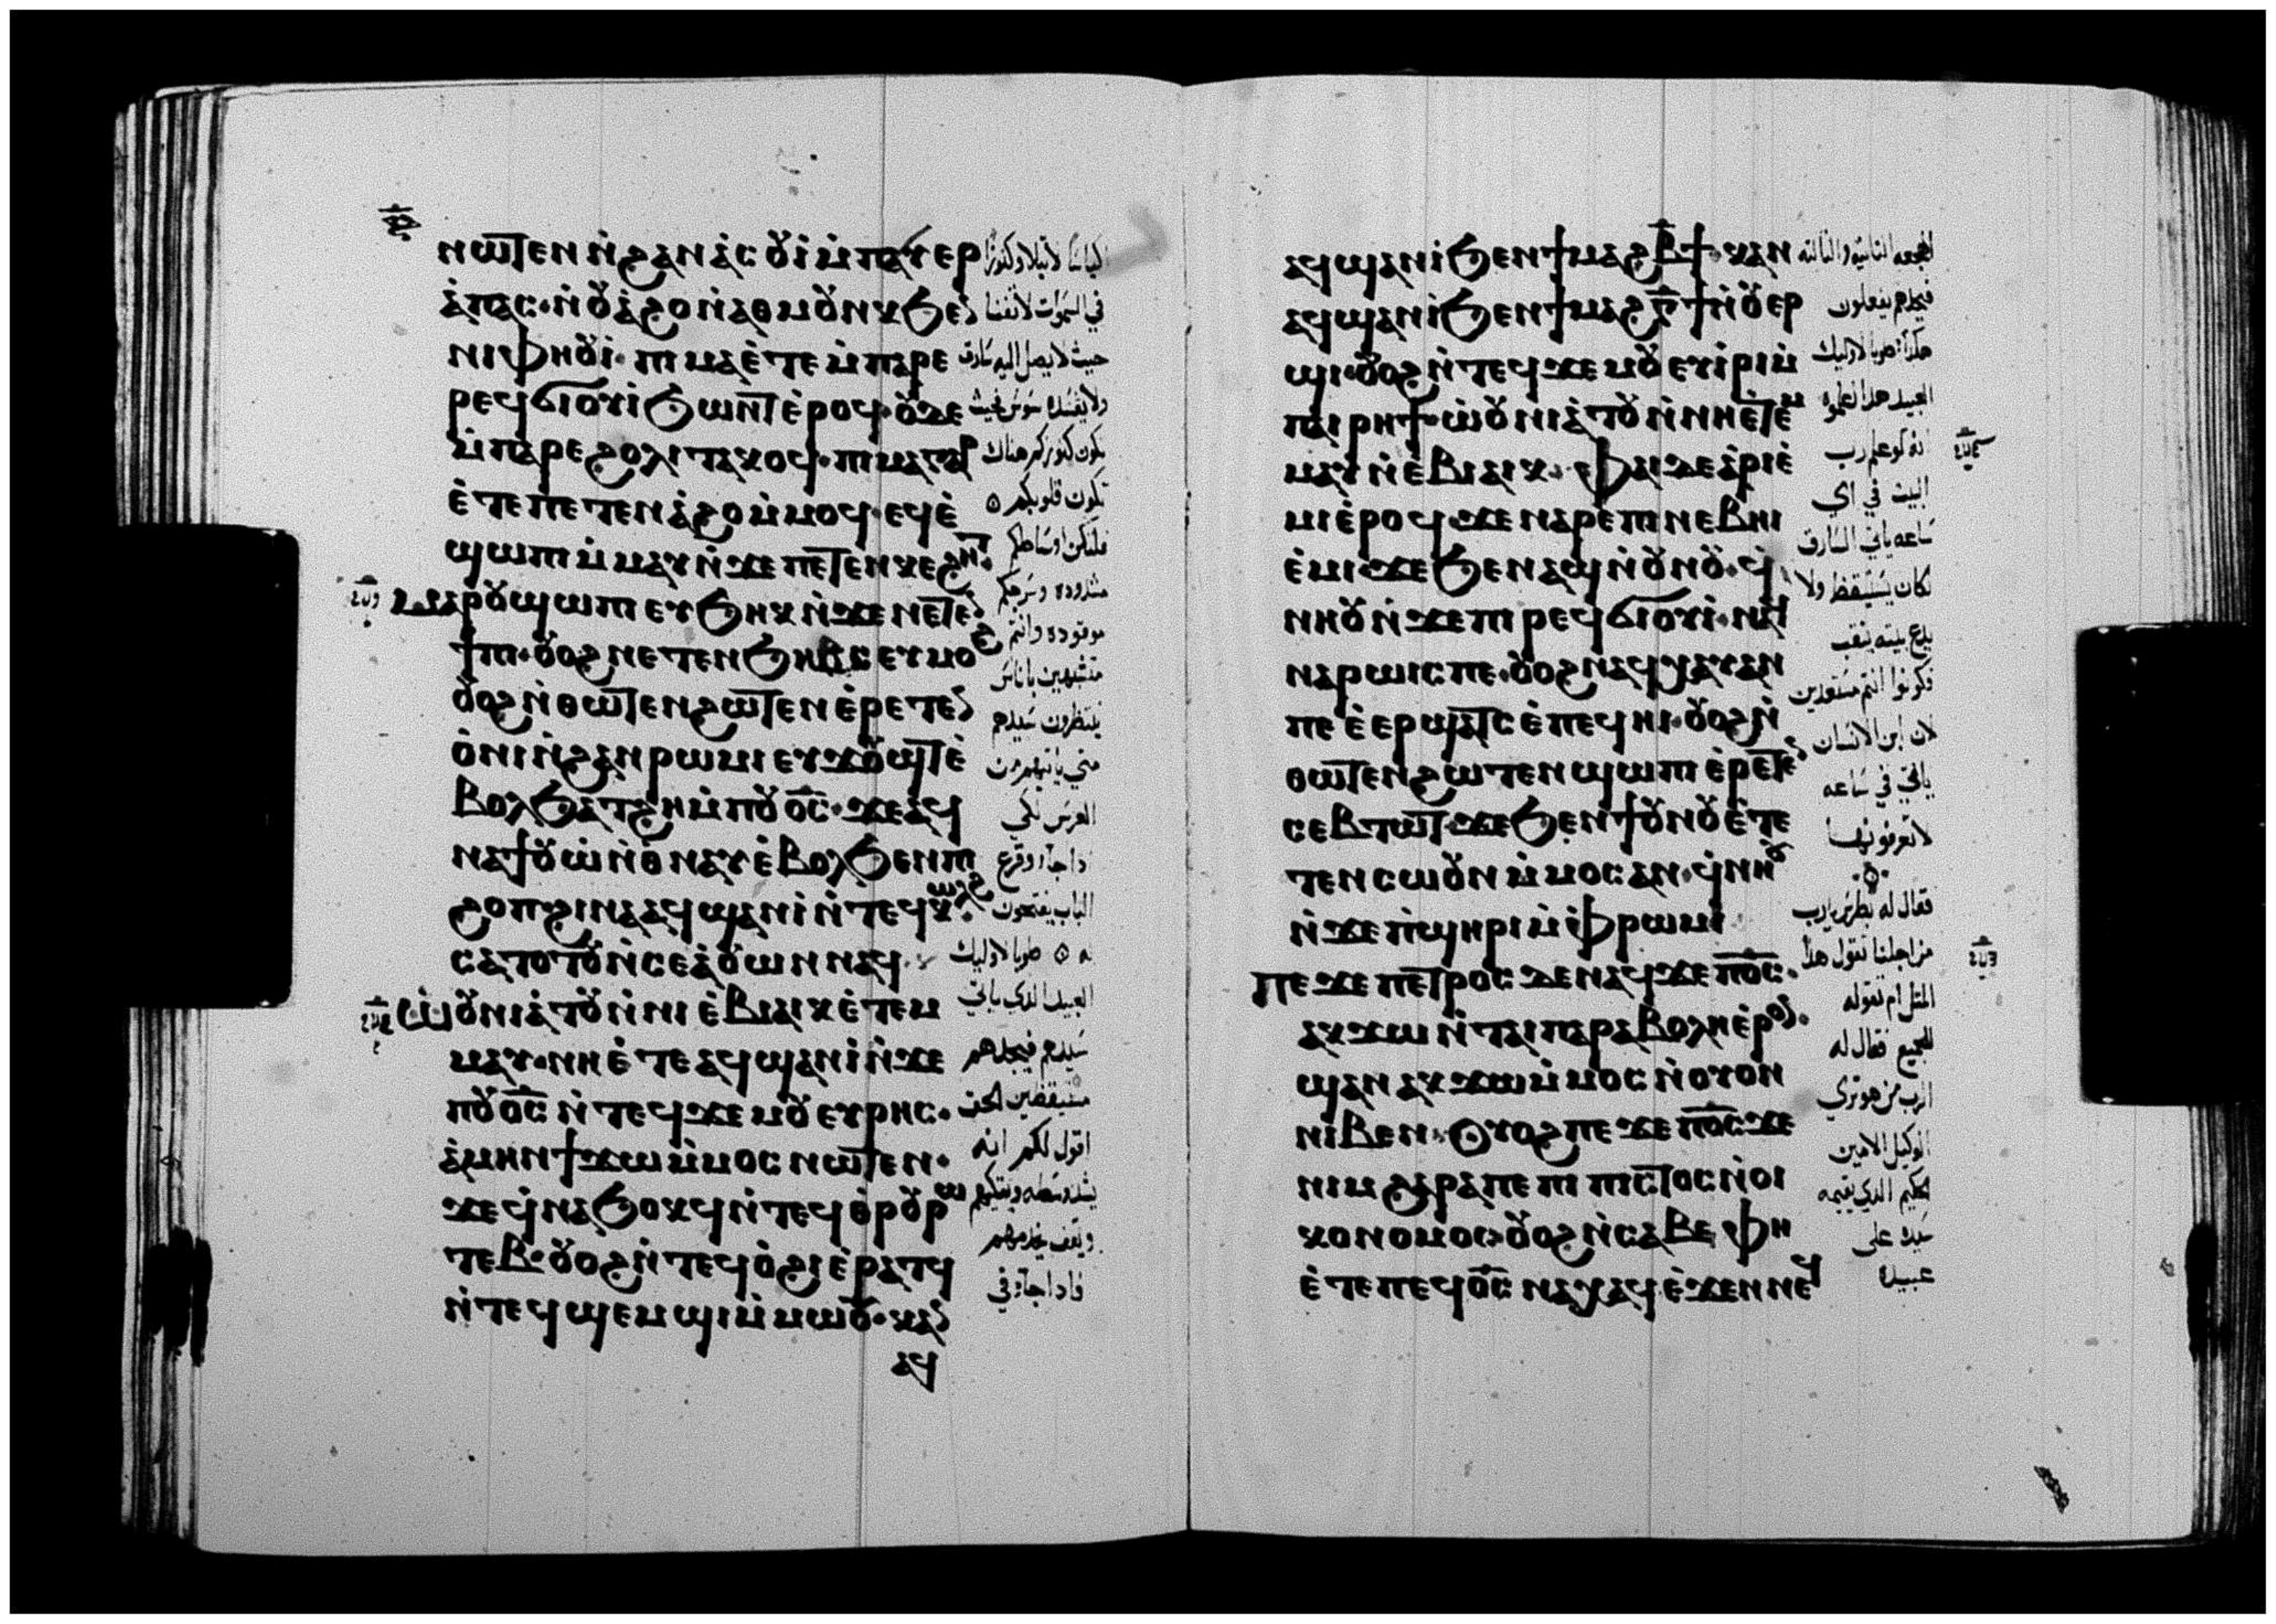 ⲛⲱⲧⲉⲛ ⲛ̇ϩⲁⲛⲁ̇ⲥⲟⲩⲓ ⲙ̇ⲡⲁⲩⲉⲣ
ⲁ̇ⲡⲁⲥ· ⲛ̇ⲟⲩⲁ̇ϩⲟ ⲛ̇ⲁⲑⲙⲟⲩⲛⲕ ϧⲉⲛ
ⲛⲓⲫⲏⲟⲩⲓ· ⲡⲓⲙⲁ ⲉ̇ⲧⲉ ⲙ̇ⲡⲁⲣⲉ
ⲣⲉϥϭⲓⲟⲩⲓ̇ ϧⲱⲛⲧ ⲉ̇ⲣⲟϥ· ⲟⲩⲇⲉ
ⲙ̇ⲡⲁⲣⲉϩⲟⲗⲓ ⲧⲁⲕⲟϥ· ⲡⲓⲙⲁ ⲅⲁⲣ
ⲉ̇ⲧⲉ ⲡⲉⲧⲉⲛⲁ̇ϩⲟ ⲙ̇ⲙⲟϥ· ⲉϥⲉ̇
ϣⲱⲡⲓ ⲙ̇ⲙⲁⲩ ⲛ̇ϫⲉ ⲡⲉⲧⲉⲛⲕⲉϩⲏⲧ·
ⲙⲁⲣⲟⲩϣⲱⲡⲓ ⲉⲩϧⲏⲕ ⲛ̇ϫⲉ ⲛⲉⲧⲉⲛ
ϯⲡⲓ· ⲟⲩⲟϩ ⲛⲉⲧⲉⲛϧⲏⲃⲥ ⲉⲩⲙⲟϩ
ⲟⲩⲟϩ ⲛ̇ⲑⲱⲧⲉⲛ ϩⲱⲧⲉⲛ ⲉ̇ⲣⲉⲧⲉⲛ
ⲟ̇ⲛⲓ ⲛ̇ϩⲁⲛⲣⲱⲙⲓ ⲉⲩϫⲟⲩϣⲧ ⲉ̇
ⲃⲟⲗ ϧⲁⲧϩⲏ ⲙ̇ⲡⲟⲩⲟ̅ⲥ̅· ϫⲉ ⲁϥ
ⲛⲁϯⲟⲩⲱ̇ ⲛ̇ⲑⲛⲁⲩ ⲉ̇ⲃⲟⲗ ϧⲉⲛ ⲡⲓ
ϩⲟⲡ ϩⲓⲛⲁ ⲁϥϣⲁⲛⲓ̇ ⲛ̇ⲧⲉϥⲕⲱⲗϩ·
ⲥⲁⲧⲟⲧⲟⲩ ⲛ̇ⲥⲉⲁ̇ⲟⲩⲱⲛ ⲛⲁϥ·
ⲱ̇ⲟⲩⲛⲓⲁ̇ⲧⲟⲩ ⲛ̇ⲛⲓ ⲉ̇ⲃⲓⲁⲓⲕ ⲉ̇ⲧⲉⲙ
ⲙⲁⲩ· ⲛⲏ ⲉ̇ⲧⲉ ⲁϥϣⲁⲛⲓ̇ ⲛ̇ϫⲉ
ⲡⲟⲩⲟ̅ⲥ̅ ⲛ̇ⲧⲉϥϫⲉⲙⲟⲩ ⲉⲩⲣⲏⲥ·
ⲁ̇ⲙⲏⲛ ϯϫⲱ ⲙ̇ⲙⲟⲥ ⲛⲱⲧⲉⲛ·
ϫⲉ ϥ̇ⲛⲁϧⲟⲕϥ ⲛ̇ⲧⲉϥⲑ̇ⲣⲟⲩⲣⲱ
ⲧⲉⲃ· ⲟⲩⲟϩ ⲛ̇ⲧⲉϥⲟ̇ϩⲓ ⲉ̇ⲣⲁⲧϥ
ⲛ̇ⲧⲉϥϣⲉⲙϣⲓ ⲙ̇ⲙⲱⲟⲩ· ⲕⲁⲛ
ⲁϥ
اكياسا لا تبلا وكنوزا
في السموات لا تفنا
حيث لا يصل اليه سارق
ولا يفسده سوس فحيث
تكون كنوزكم هناك
تكون قلوبكم
فلتكن اوساطكم
مشدوده وسرجكم
موقوده وانتم
متشبهين باناس
ينتظرون سيدهم
متي ياتيهم من
العرس لكي
اذا جا وقرع
الباب يفتحون
له طوبا لاوليك
العبيد الذي ياتي
سيدهم فيجدهم
مستيقظين الحق
اقول لكم انه
يشد وسطه ويتكيهم
ويقف يخدمهم
فاذا جا في
ⲁϥϣⲁⲛⲓ̇ ϧⲉⲛ ϯⲙⲁϩⲃ̅ϯ· ⲕⲁⲛ
ⲁϥϣⲁⲛⲓ̇ ϧⲉⲛ ϯⲙⲁϩⲅ̅ϯ ⲛ̇ⲟⲩⲉⲣ
ϣⲓ· ⲟⲩⲟϩ ⲛ̇ⲧⲉϥϫⲉⲙⲟⲩ ⲉⲩⲓ̇ⲣⲓ ⲙ̇
ⲡⲁⲓⲣⲏϯ· ⲱ̇ⲟⲩⲛⲓⲁ̇ⲧⲟⲩ ⲛ̇ⲛⲏ ⲉ̇ⲧⲉⲙ
ⲙⲁⲩ ⲛ̇ⲉ̇ⲃⲓⲁⲓⲕ· ⲫⲁⲓ ⲇⲉ ⲁ̇ⲣⲓⲉ̇
ⲙⲓ ⲉ̇ⲣⲟϥ ϫⲉ ⲛⲁⲣⲉ ⲡⲓⲛⲉⲃⲏⲓ
ⲉ̇ⲙⲓ ϫⲉ ϧⲉⲛ ⲁϣ ⲛ̇ⲟⲩⲛⲟⲩ· ϥ̇
ⲛⲏⲟⲩ ⲛ̇ϫⲉ ⲡⲓⲣⲉϥϭⲓⲟⲩⲓ̇· ⲛⲁϥ
ⲛⲁⲣⲱⲓⲥ ⲡⲉ· ⲟⲩⲟϩ ⲛⲁϥⲭⲁⲩ ⲁⲛ
ⲡⲉ ⲉ̇ⲉⲣϣⲁⲧⲥ ⲉ̇ⲡⲉϥⲏⲓ· ⲟⲩⲟϩ ⲛ̇
ⲑⲱⲧⲉⲛ ϩⲱⲧⲉⲛ ϣⲱⲡⲓ ⲉ̇ⲣⲉⲧⲉⲛ
ⲥⲉⲃⲧⲱⲧ· ϫⲉ ϧⲉⲛ ϯⲟⲩⲛⲟⲩ ⲉ̇ⲧⲉ
ⲧⲉⲛⲥⲱⲟⲩⲛ ⲙ̇ⲙⲟⲥ ⲁⲛ· ϥ̇ⲛⲏⲟⲩ
ⲛ̇ϫⲉ ⲡ̇ϣⲏⲣⲓ ⲙ̇ⲫⲣⲱⲙⲓ
ⲡⲉϫⲉ ⲡⲉⲧⲣⲟⲥ ⲇⲉ ⲛⲁϥ ϫⲉ ⲡⲟ̅ⲥ̅·
ⲁⲕϫⲱ ⲛ̇ⲧⲁⲓⲡⲁⲣⲁⲃⲟⲗⲏ ⲉ̇ⲣⲟⲛ·
ϣⲁⲛ ⲁⲕϫⲱ ⲙ̇ⲙⲟⲥ ⲛ̇ⲟⲩⲟⲛ
ⲛⲓⲃⲉⲛ· ⲟⲩⲟϩ ⲡⲉϫⲉ ⲡⲟ̅ⲥ̅ ϫⲉ
ⲛⲓⲙ ϩⲁⲣⲁ ⲡⲉ ⲡⲓⲡⲓⲥⲧⲟⲥ ⲛ̇ⲟⲓ
ⲕⲟⲛⲟⲙⲟⲥ ⲟⲩⲟϩ ⲛ̇ⲥⲁⲃⲉ ⲫⲏ
ⲉ̇ⲧⲉ ⲡⲉϥⲟ̅ⲥ̅ ⲛⲁⲭⲁϥ ⲉ̇ϫⲉⲛ ⲛⲉϥ
الهجعه الثانيه والثالثه
فيجدهم يفعلون
هكذا طوبا لاوليك
العبيد هذا اعلموه
انه لو علم رب
البيت في اي
ساعه ياتي السارق
لكان يستيقظ ولا
يدع بيته ينقب
فكونوا انتم مستعدين
لان ابن الانسان
ياتي في ساعه
لا تعرفونها
فقال له بطرس يارب
من اجلنا تقول هذا
المثل ام تقوله
للجميع فقال له
الرب من هو تري
الوكيل الامين
الحكيم الذي يقيمه
سيده علي
عبيده